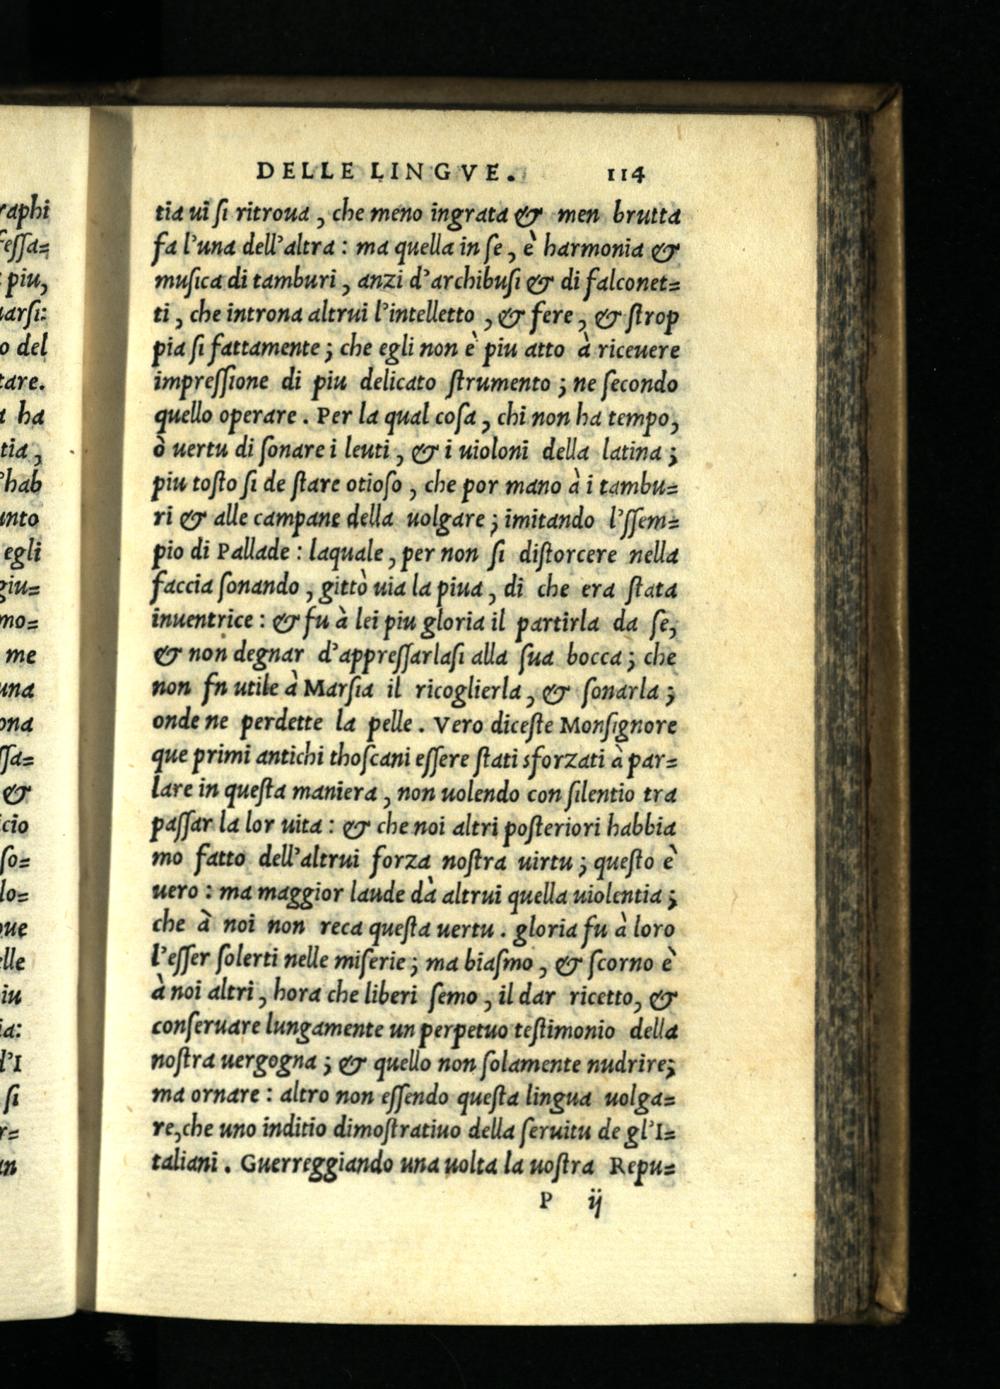 DELLE LINGVE. 114
tia ui ſi ritroua, che meno ingrata & men brutta
fa l'una dell'altra: ma quella in ſe, è harmonia &
muſica di tamburi, anzi d'archibuſi & di falconet=
ti, che introna altrui l'intelletto, & fere, & ſtrop
pia ſi fattamente; che egli non è piu atto à riceuere
impreſſione di piu delicato ſtrumento; ne ſecondo
quello operare. Per la qual coſa, chi non ha tempo,
ò uertu di ſonare i leuti, & i uioloni della latina;
piu toſto ſi de ſtare otioſo, che por mano à i tambu=
ri & alle campane della uolgare; imitando l'ſſem=
pio di Pallade: laquale, per non ſi diſtorcere nella
faccia ſonando, gittò uia la piua, di che era ſtata
inuentrice: & fu à lei piu gloria il partirla da ſe,
& non degnar d'appreſſarlaſi alla ſua bocca; che
non fn utile à Marſia il ricoglierla, & ſonarla;
onde ne perdette la pelle. Vero diceſte Monſignore
que primi antichi thoſcani eſſere ſtati sforzati à par=
lare in queſta maniera, non uolendo con ſilentio tra
paſſar la lor uita: & che noi altri poſteriori habbia
mo fatto dell'altrui forza noſtra uirtu; queſto è
uero: ma maggior laude dà altrui quella uiolentia;
che à noi non reca queſta uertu. gloria fu à loro
l'eſſer ſolerti nelle miſerie; ma biaſmo, & ſcorno è
à noi altri, hora che liberi ſemo, il dar ricetto, &
conſeruare lungamente un perpetuo teſtimonio della
noſtra uergogna; & quello non ſolamente nudrire;
ma ornare: altro non eſſendo queſta lingua uolga=
re,che uno inditio dimoſtratiuo della ſeruitu de gl'I=
taliani. Guerreggiando una uolta la uoſtra Repu=
P ij